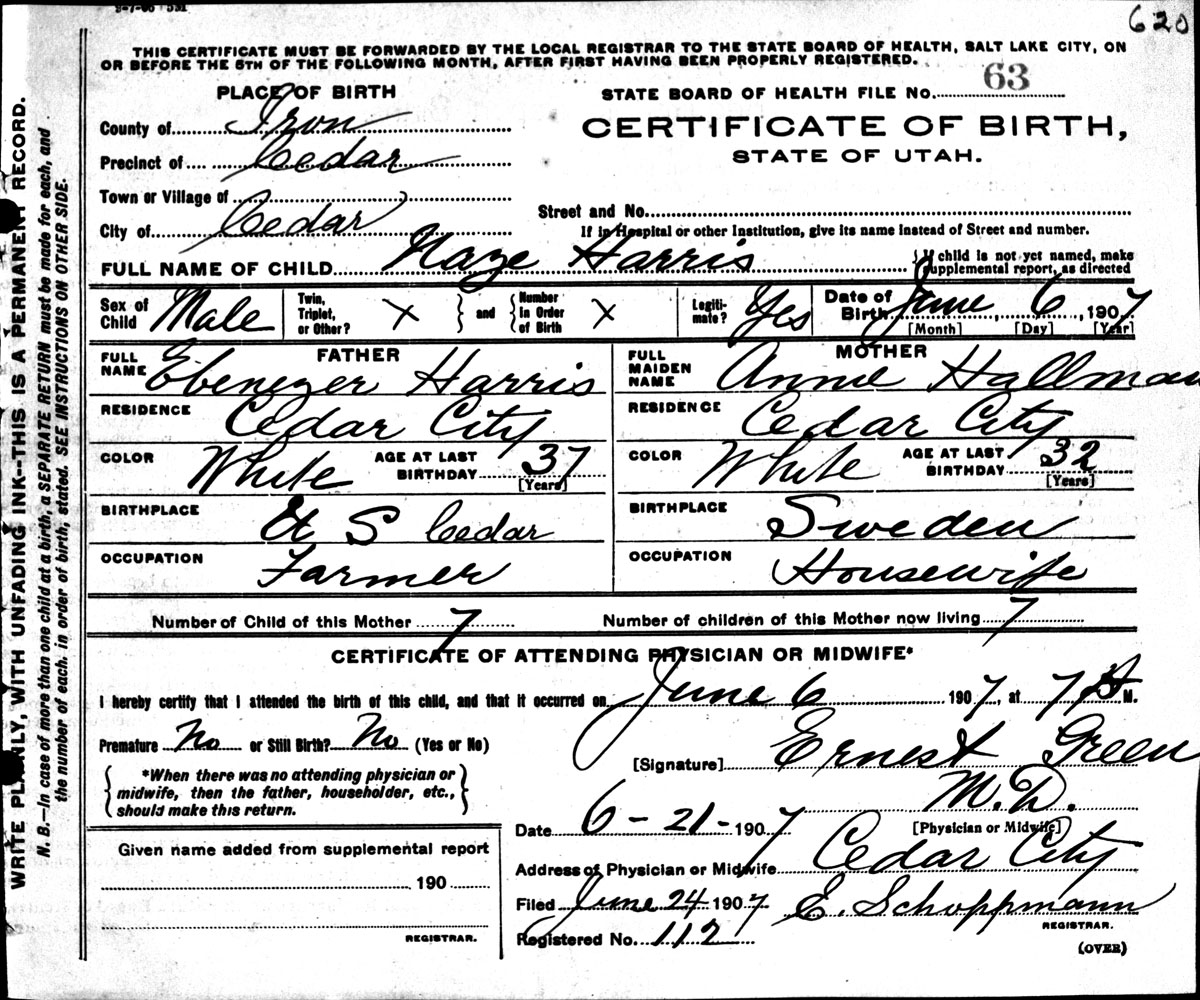 620
THIS CERTIFICATE MUST BE FORWARDED BY THE LOCAL REGISTRAR TO THE STATE BOARD OF HEALTH, SALT LAKE CITY, ON
OR BEFORE THE 5TH OF THE FOLLOWING MONTH, AFTER FIRST HAVING BEEN PROPERLY REGISTERED.
WRITE PLAINLY, WITH UNFADING INK--THIS IS A PERMANENT RECORD.
N. B.—In case of more than one child at a birth, a SEPARATE RETURN must be made for each, and
the number of each, in order of birth, stated. SEE INSTRUCTIONS ON OTHER SIDE.
PLACE OF BIRTH
STATE BOARD OF HEALTH FILE NO. 63
County of Iron
CERTIFICATE OF BIRTH,
Precinct of Cedar
STATE OF UTAH.
Town or Village of
Street and No.
City of Cedar
If in Hospital or other Institution, give its name instead of Street and number.
FULL NAME OF CHILD Naze Harris
If child is not yet named, make
supplemental report, as directed
Sex of Child Male
Twin, Triplet, or Other? X and Number in Order of Birth X
Legitimate? Yes
Date of Birth June 6, 1907
[Month] [Day] [Year]
FATHER
FULL NAME Ebenezer Harris
RESIDENCE Cedar City
COLOR White AGE AT LAST BIRTHDAY 37
[Years]
BIRTHPLACE U S Cedar
OCCUPATION Farmer
MOTHER
FULL MAIDEN NAME Annie Hallman
RESIDENCE Cedar City
COLOR White AGE AT LAST BIRTHDAY 32
[Years]
BIRTHPLACE Sweden
OCCUPATION Housewife
Number of Child of this Mother 7 Number of children of this Mother now living 7
CERTIFICATE OF ATTENDING PHYSICIAN OR MIDWIFE*
I hereby certify that I attended the birth of this child, and that it occurred on June 6 1907, at 7 M.
Premature No or Still Birth? No (Yes or No)
*When there was no attending physician or
midwife, then the father, householder, etc.,
should make this return.
[Signature] Ernest Green
M.D.
[Physician or Midwife]
Date 6-21-1907
Address of Physician or Midwife Cedar City
Given name added from supplemental report
190
REGISTRAR.
Filed June 24 1907 E. Schoppmann
REGISTRAR.
Registered No. 112
(OVER)